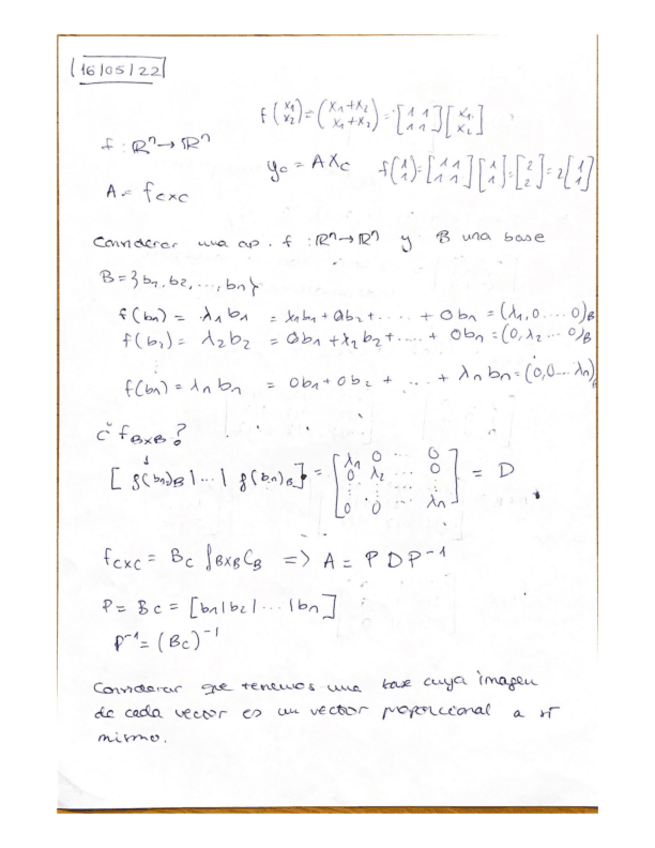 16/05/22
f (x1 x2) = (x1+x2 x1+x2) = [1 1 1 1] [x1 x2]
f : ℝⁿ → ℝⁿ
yc = A Xc f(1 1) = [1 1 1 1] [1 1] = [2 2] = 2 [1 1]
A = fcxc
Considerar una ap. f : ℝⁿ → ℝⁿ y B una base
B = {b1, b2, ..., bn}
f(b1) = λ1 b1 = λ1b1 + 0b2 + ... + 0bn = (λ1, 0 .... 0)B
f(b2) = λ2 b2 = 0b1 + λ2b2 + .... + 0bn = (0, λ2 ... 0)B
f(bn) = λn bn = 0b1 + 0b2 + ... + λn bn = (0, 0... λn)
¿ fBxB ?
[ f(b1)B | ... | f(bn)B ] = [λ1 0 ... 0 0 λ2 ... 0 ⋮ ⋮ ⋮ 0 0 λn] = D
fcxc = Bc fBxB CB => A = P D P⁻¹
P = Bc = [b1 | b2 | ... | bn]
P⁻¹ = (Bc)⁻¹
Considerar que tenemos una base cuya imagen
de cada vector es un vector proporcional a sí
mismo.